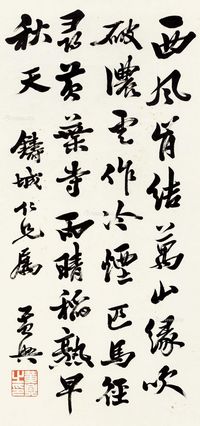 西風肯結萬山緣吹
破濃雲作冷煙匹馬徑
尋黃葉寺雨晴稻熟早
秋天
鑄城仁兄屬
黃興